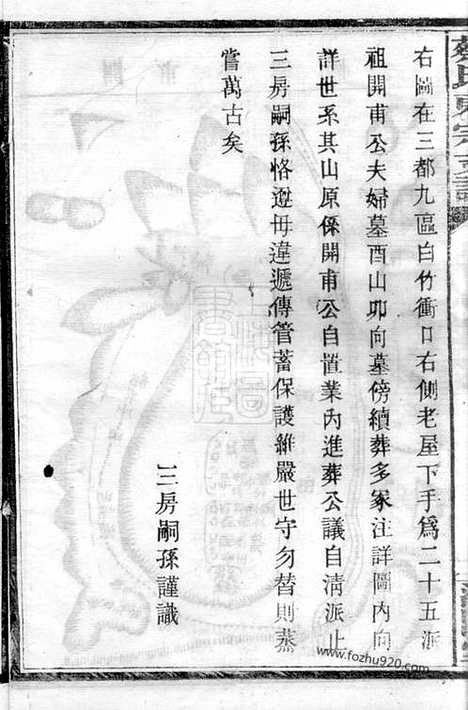 右圖在三都九區白竹衝口右側老屋下手爲二十五派
祖開甫公夫婦墓酉山卯向墓傍續葬多冢注詳圖內向
詳世系其山原係開甫公自置業內進葬公議自淸派止
三房嗣孫恪遵毋違遞傳管蓄保護維嚴世守勿替則蒸
嘗萬古矣
三房嗣孫謹識
www.fozhu920.com